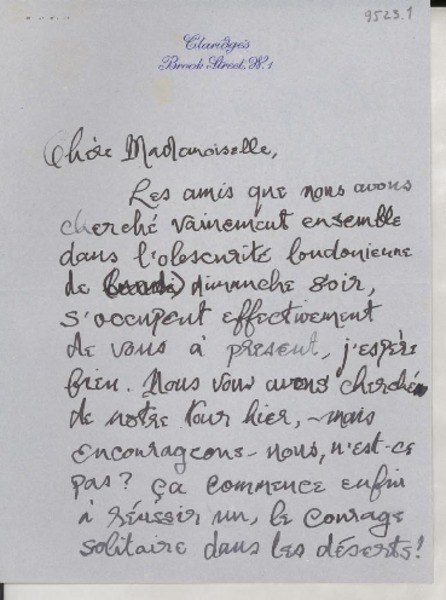 9523.1
Claridge's
Brook Street, W.1
Chère Mademoiselle,
Les amis que nous avons
cherché vainement ensemble
dans l'obscurité londonienne
de dimanche soir,
s'occupent effectivement
de vous à présent, j'espère
bien. Nous vous avons cherchée
de notre tour hier, – mais
encourageons-nous, n'est-ce
pas? Ça commence enfin
à réussir un, le courage
solitaire dans les déserts!